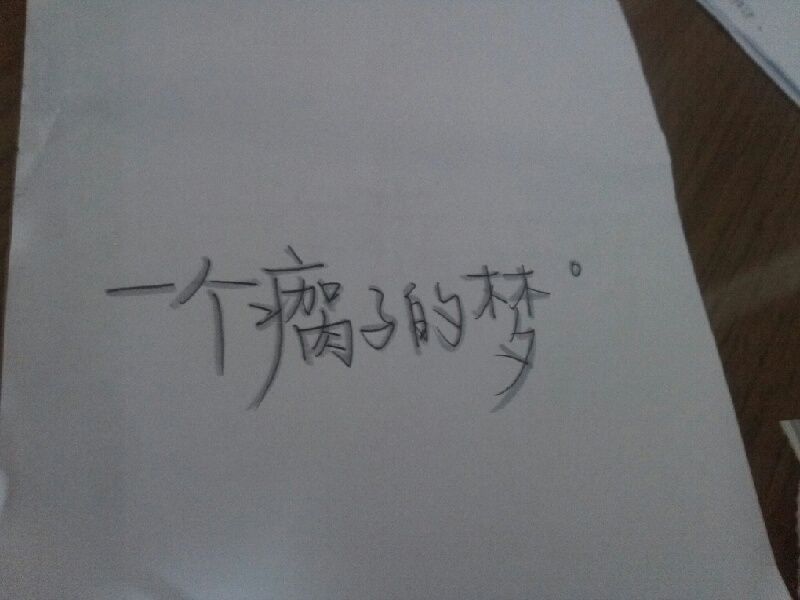 一个瘸子的梦。